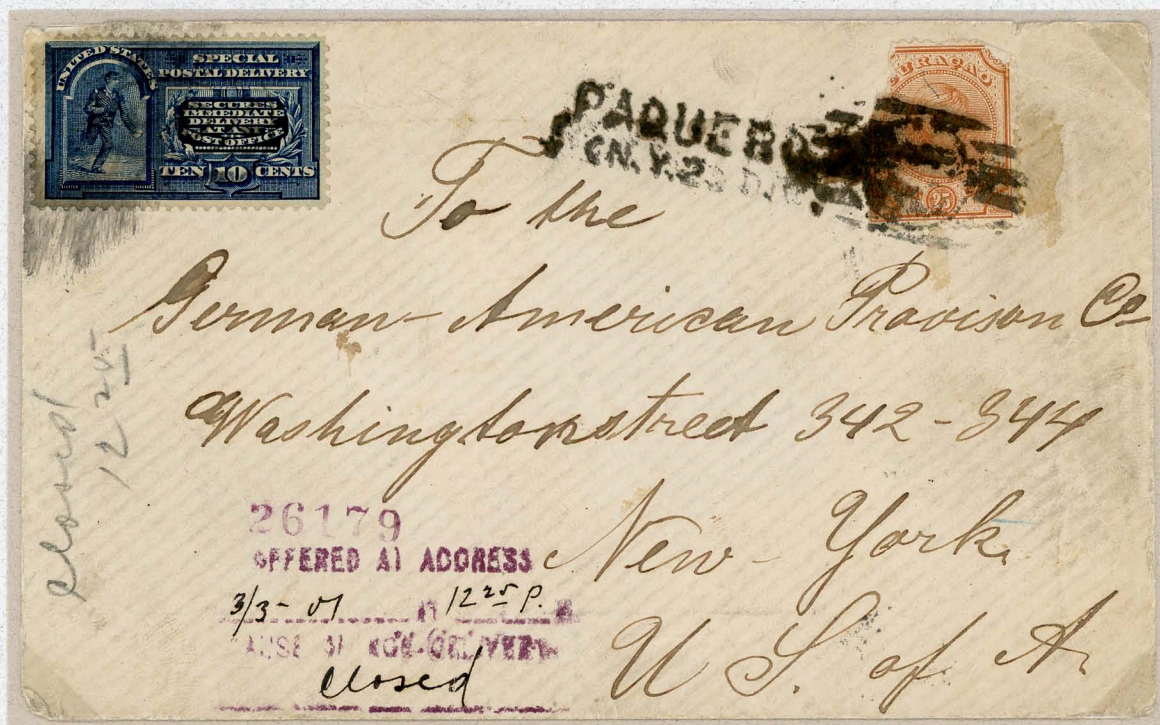 UNITED STATES
SPECIAL
POSTAL DELIVERY
SECURES
IMMEDIATE
DELIVERY
AT ANY
POST OFFICE
TEN 10 CENTS
PAQUEBO
(N.Y. 2D DIV.
CURAÇAO
25
To the
German-American Provison Co
Washingtonstreet 342-344
New-York.
U S. of A.
closed
12 25
26179
OFFERED AT ADDRESS
3/3-01 AT 12 25 P. M.
CAUSE OF NON-DELIVERY
closed